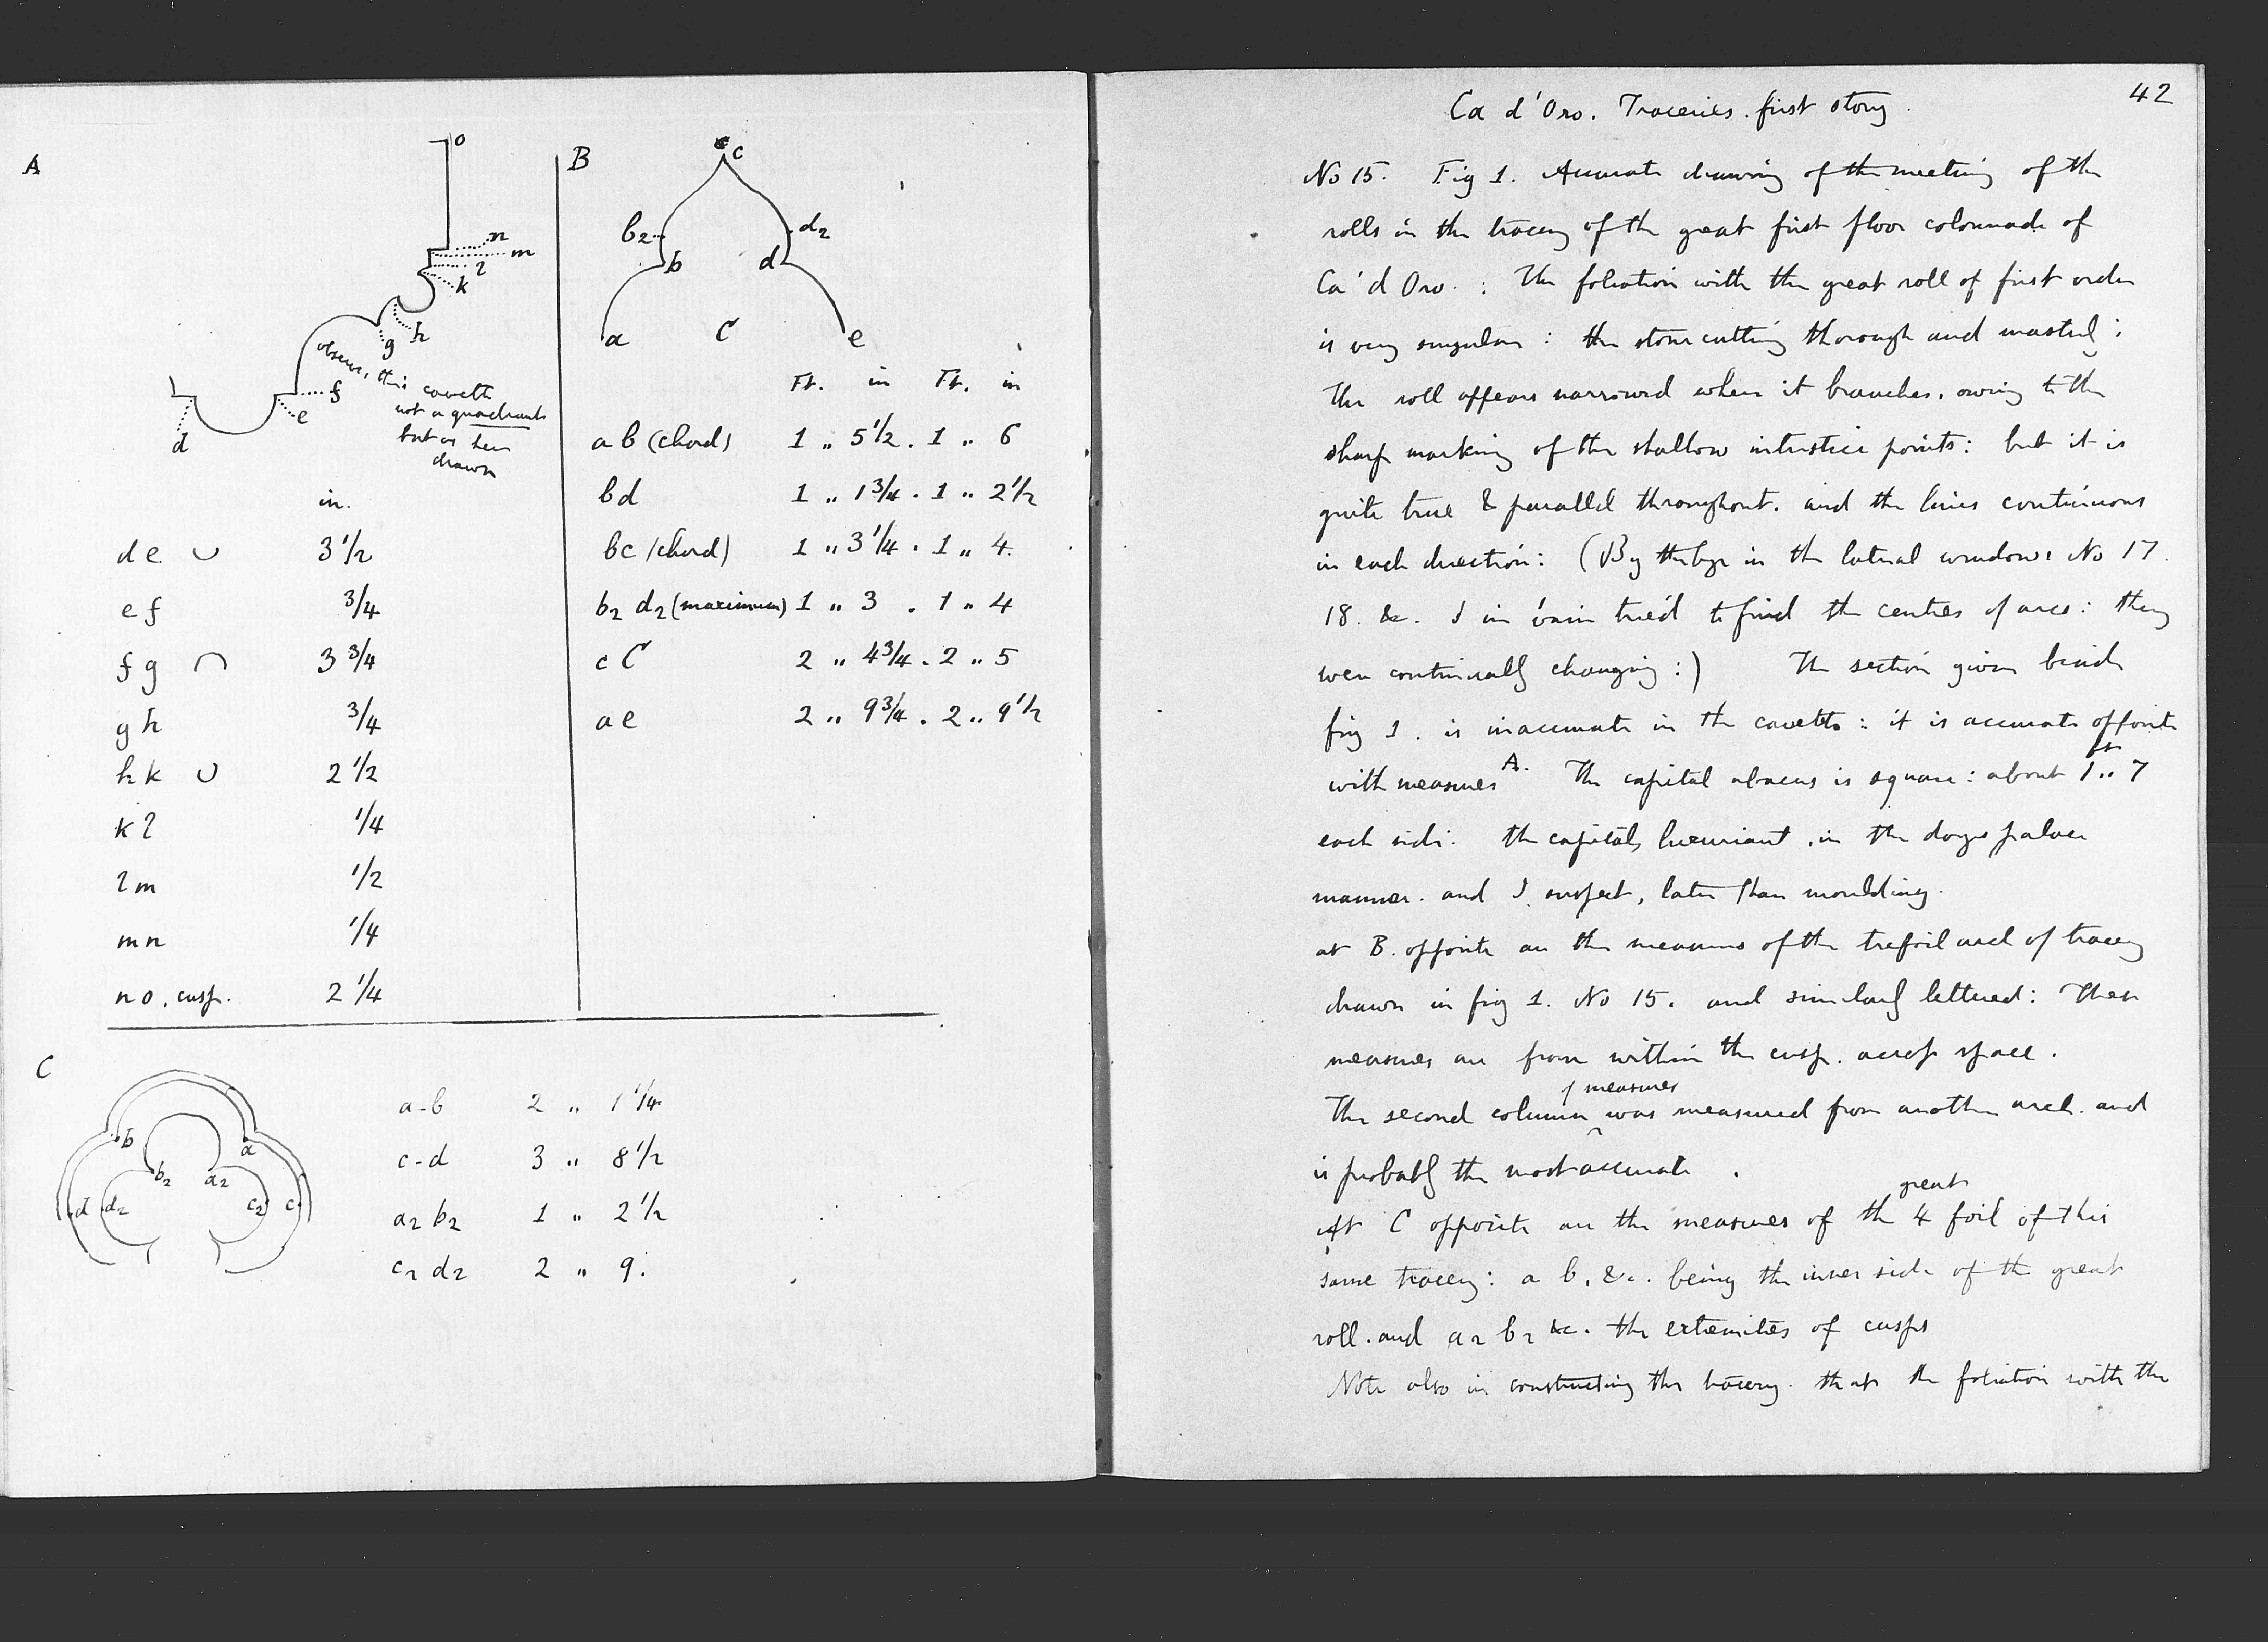 A
o
n
m
l
k
h
g
f
e
d
observe, this cavetto
not a quadrant
but as here
drawn
in.
de ∪ 3 1/2
ef 3/4
fg ∩ 3 3/4
gh 3/4
hk ∪ 2 1/2
kl 1/4
lm 1/2
mn 1/4
no. cusp. 2 1/4
B
c
b2 d2
b d
a C e
Ft. in Ft. in
ab (chord) 1 " 5 1/2 . 1 " 6
bd 1 " 1 3/4 . 1 " 2 1/2
bc (chord) 1 " 3 1/4 . 1 " 4.
b2 d2 (maximum) 1 " 3 . 1 " 4
cC 2 " 4 3/4 . 2 " 5
ae 2 " 9 3/4 . 2 " 9 1/2
C
b a
b2 a2
d d2 c2 c
a-b 2 " 1 1/4
c-d 3 " 8 1/2
a2 b2 1 " 2 1/2
c2 d2 2 " 9.
42
Ca d'Oro. Traceries. first story
No 15. Fig 1. Accurate drawing of the meeting of the
rolls in the tracery of the great first floor colonnade of
Ca' d Oro. : The foliation with the great roll of first order
is very singular : the stone cutting thorough and masterly :
The roll appears narrowed when it branches, owing to the
sharp marking of the shallow interstice points : but it is
quite true & parallel throughout. and the lines continuous
in each direction : (By the bye in the lateral windows No 17.
18. &c. I in vain tried to find the centres of arcs : they
were continually changing :) The section given beside
fig 1. is inaccurate in the cavetto : it is accurate opposite
with measures A. The capital abacus is square : about 1 ft " 7
each side. The capitals luxuriant, in the doges palace
manner. and I suspect, later than moulding.
at B. opposite are the measures of the trefoil arch of tracery
drawn in fig 1. No 15. and similarly lettered : These
measures are from within the cusp. across space.
The second column of measures was measured from another arch. and
is probably the most accurate .
At C opposite are the measures of the great 4 foil of this
same tracery : a b. &c. being the inner side of the great
roll. and a2 b2 &c. the extremities of cusps
Note also in constructing this tracery. that the foliation with the